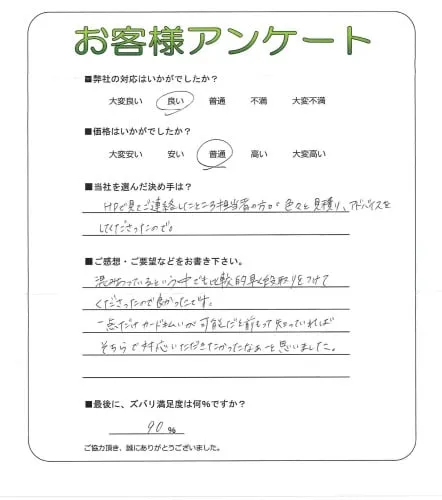 お客様アンケート
■弊社の対応はいかがでしたか？
大変良い 良い 普通 不満 大変不満
■価格はいかがでしたか？
大変安い 安い 普通 高い 大変高い
■当社を選んだ決め手は？
HPで見てご連絡したところ担当者の方が色々と見積り、アドバイスを
してくださったので。
■ご感想・ご要望などをお書き下さい。
混み合っているという中でも比較的早く段取りをつけて
くださったので良かったです。
一点だけカード払いが可能だと前もって知っていれば
そちらで対応いただきたかったなぁーと思いました。
■最後に、ズバリ満足度は何%ですか？
90 %
ご協力頂き、誠にありがとうございました。